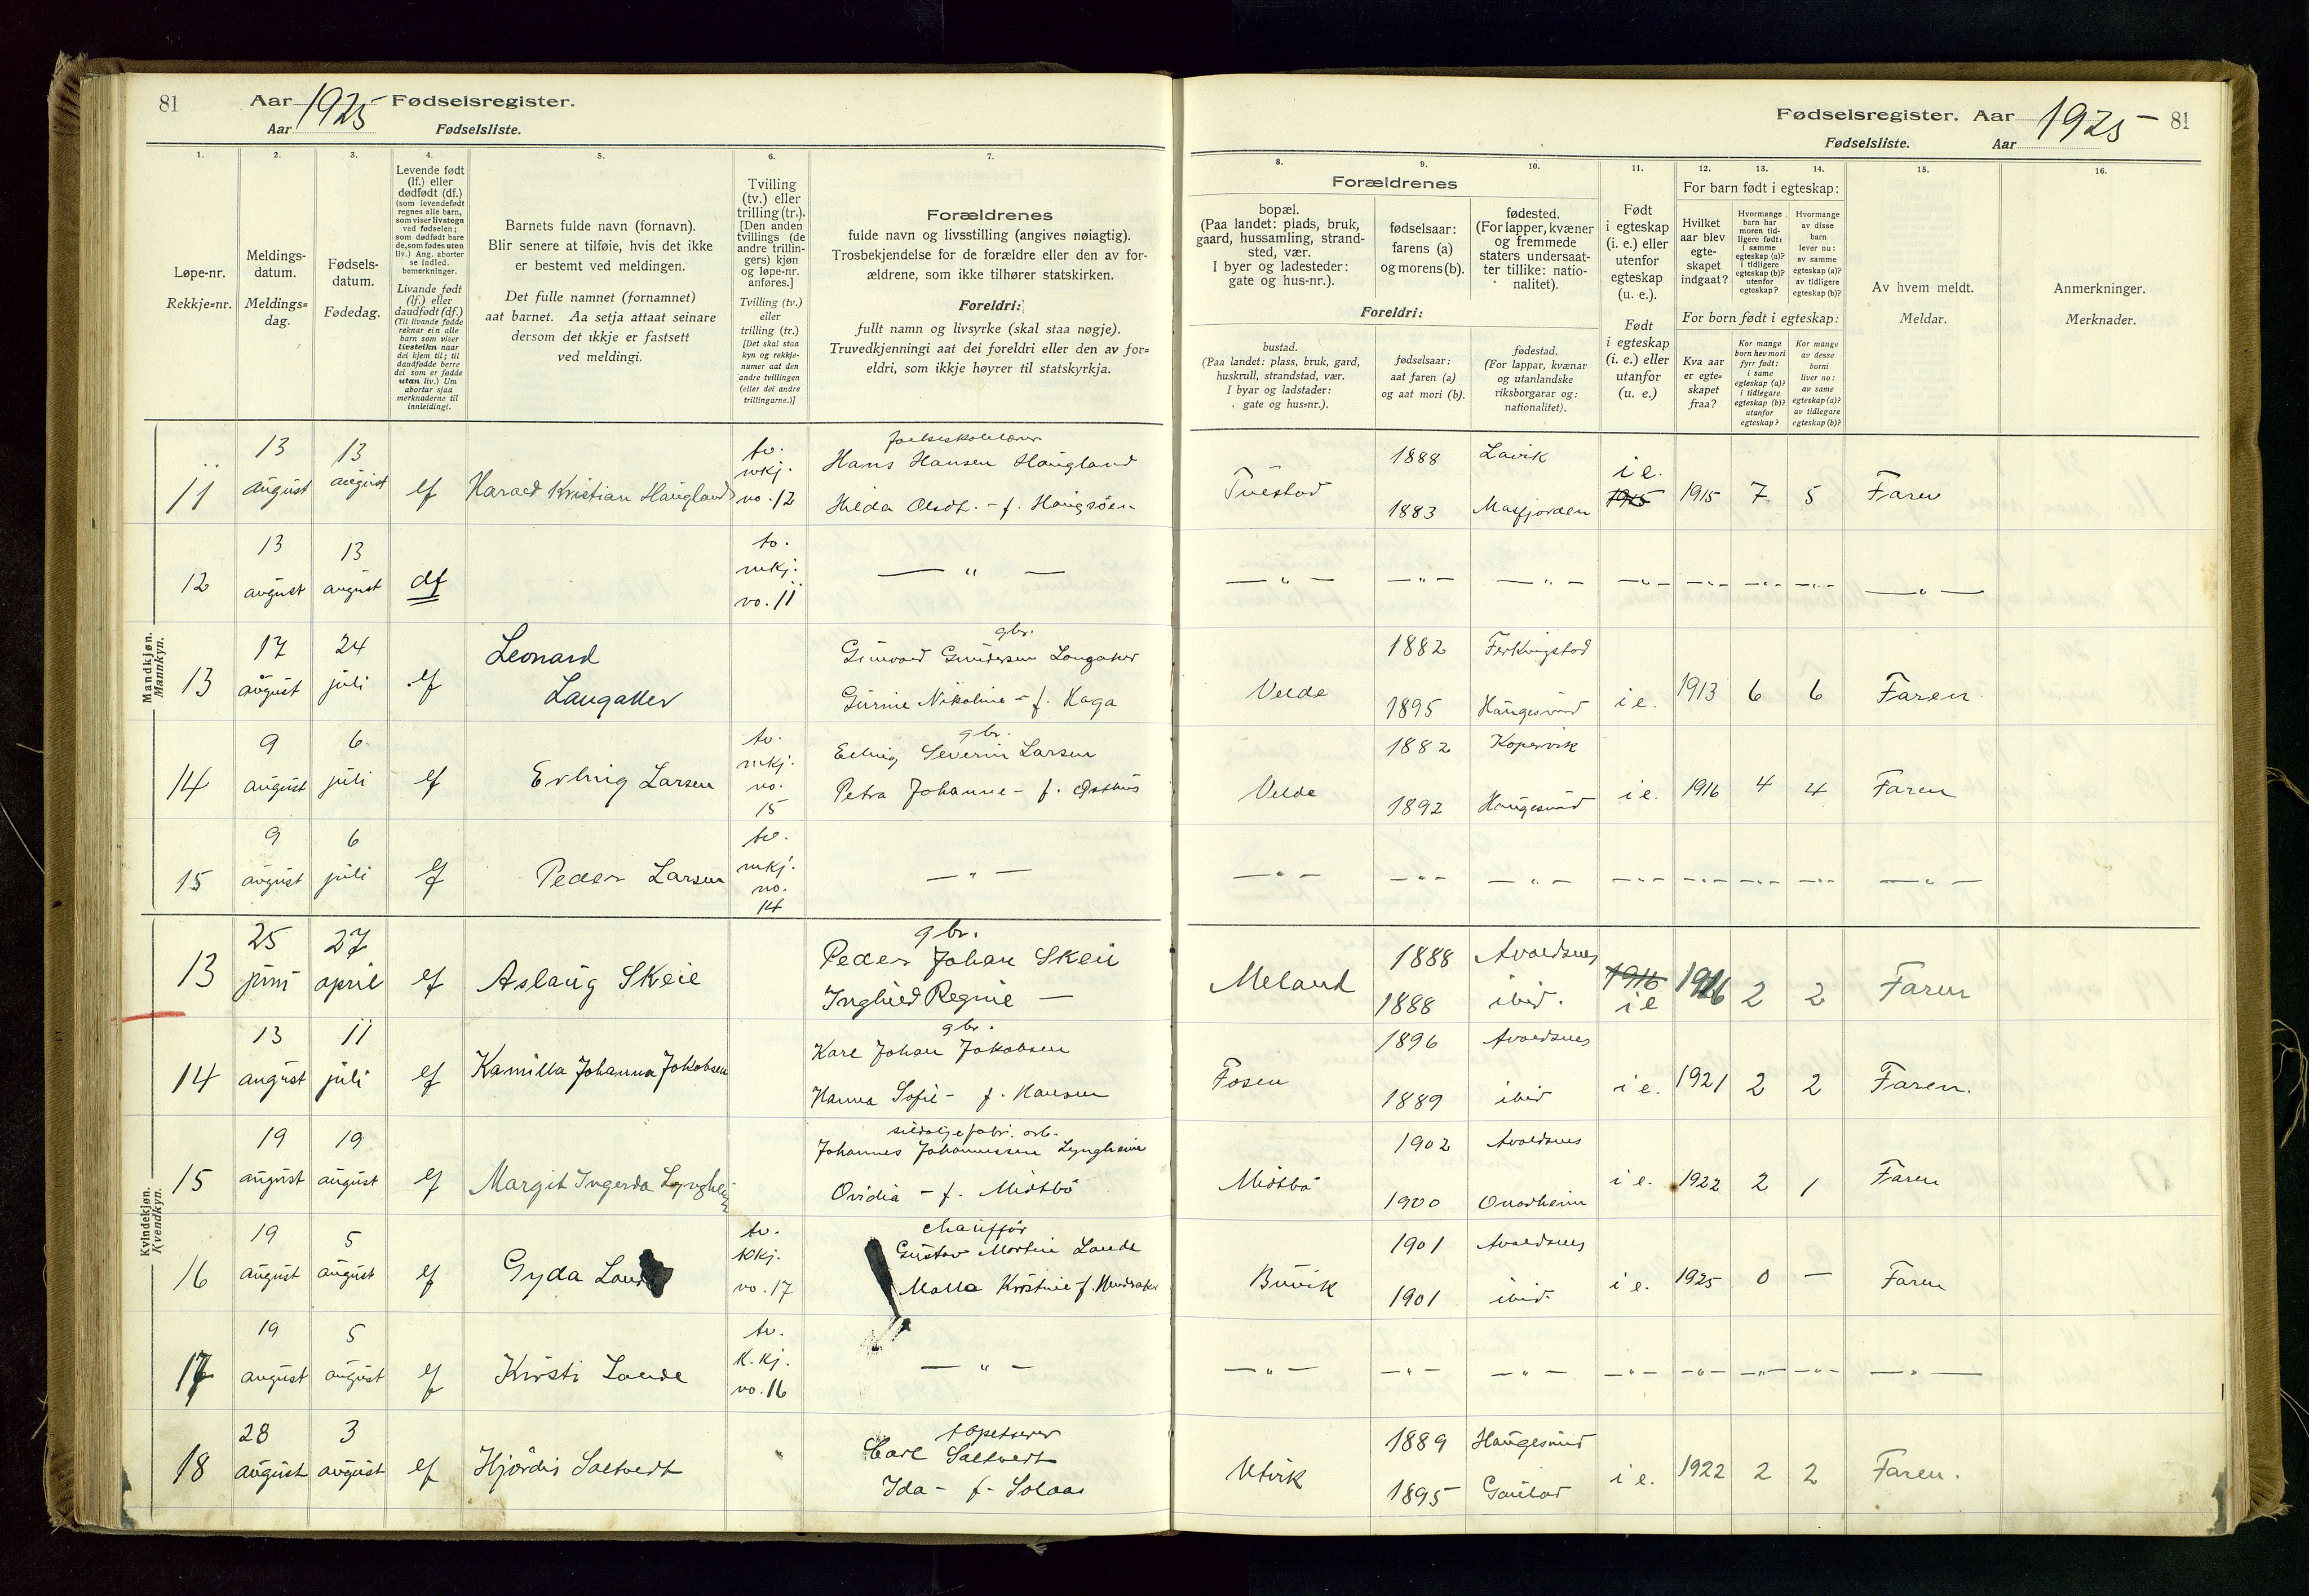 81
Aar 1925 Fødselsregister.
Aar
Fødselsliste.
1.
2.
3.
4.
5.
6.
7.
Løpe-nr.
Rekkje=nr.
Meldings-
datum.
Meldings=
dag.
Fødsels-
datum.
Fødedag.
Levende født
(lf.) eller
dødfødt (df.)
(som levendefødt
regnes alle barn,
som viser livstegn
ved fødselen;
som dødfødt bare
de, som fødes uten
liv.) Ang. aborter
se indled.
bemerkninger.
Livande født
(lf.) eller
daudfødt (df.)
(Til livande fødde
reknar ein alle
barn som viser
livsteikn naar
dei kjem til; til
daudfødde berre
dei som er fødde
utan liv.) Um
abortar sjaa
merknaderne til
innleidingi.
Barnets fulde navn (fornavn).
Blir senere at tilføie, hvis det ikke
er bestemt ved meldingen.
Det fulle namnet (fornamnet)
aat barnet. Aa setja attaat seinare
dersom det ikkje er fastsett
ved meldingi.
Tvilling
(tv.) eller
trilling (tr.).
[Den anden
tvillings (de
andre trillin-
gers) kjøn
og løpe-nr.
anføres.]
Tvilling (tv.)
eller
trilling (tr.)
[Det skal staa
kyn og rekkje-
numer aat den
andre tvillingen
(eller dei andre
trillingarne.)]
Forældrenes
fulde navn og livsstilling (angives nøiagtig).
Trosbekjendelse for de forældre eller den av for-
ældrene, som ikke tilhører statskirken.
Foreldri:
fullt namn og livsyrke (skal staa nøgje).
Truvedkjenningi aat dei foreldri eller den av for=
eldri, som ikkje høyrer til statskyrkja.
Mandkjøn.
Mannkyn.
11
13 august
13 august
lf
Harald Kristian Haugland
tv.
mkj.
no. 12
Hans Hansen Haugland
Hilda Olsdt. - f. Haugsøen
12
13 august
13 august
df
tv.
mkj.
no. 11
— " —
13
17 august
24 juli
lf
Leonard
Langaker
gbr.
Gunvald Gundersen Langaker
Gurine Nikoline - f. Haga
14
9 august
6 juli
lf
Erling Larsen
tv.
mkj.
no.
15
gbr.
Elling Severin Larsen
Petra Johanne - f. Østhus
15
9 august
6 juli
lf
Peder Larsen
tv.
mkj.
no.
14
— " —
Kvindekjøn.
Kvendkyn.
13
25 juni
27 april
lf
Aslaug Skeie
gbr.
Peder Johan Skeie
Regine —
14
13 august
11 juli
lf
Kamilla Johanna Jakobsen
gbr.
Karl Johan Jakobsen
Hanna Sofie - f. Hansen
15
19 august
19 august
lf
Margit Ingerda Lyngheim
sildoljefabr. arb.
Johannes Johannessen Lyngheim
Ovidia - f. Midtbö
16
19 august
5 august
lf
Gyda Lande
tv.
kkj.
no. 17
chauffør
Gustav Martin Lande
Malla Kristine f.
17
19 august
5 august
lf
Kirsti Lande
tv.
K.kj.
no. 16
— " —
18
28 august
3 august
lf
Hjördis Saltvedt
tapetserer
Carl Saltvedt
Ida - f. Solaas
Fødselsregister. Aar 1925
81
Fødselsliste.
Aar
8.
9.
10.
11.
12.
13.
14.
15.
16.
Forældrenes
bopæl.
(Paa landet: plads, bruk,
gaard, hussamling, strand-
sted, vær.
I byer og ladesteder:
gate og hus-nr.).
fødselsaar:
farens (a)
og morens (b).
fødested.
(For lapper, kvæner
og fremmede
staters undersaat-
ter tillike: natio-
nalitet).
Foreldri:
bustad.
(Paa landet: plass, bruk, gard,
huskrull, strandstad, vær.
I byar og ladstader:
gate og hus=nr.).
fødselsaar:
aat faren (a)
og aat mori (b).
fødestad.
(For lappar, kvænar
og utanlandske
riksborgarar og:
nationalitet).
Født
i egteskap
(i. e.) eller
utenfor
egteskap
(u. e.).
Født
i egteskap
(i. e.) eller
utanfor
(u. e.)
For barn født i egteskap:
Hvilket
aar blev
egte-
skapet
indgaat?
Hvormange
barn har
moren tid-
ligere født:
i samme
egteskap (a)?
i tidligere
egteskap (b)?
utenfor
egteskap?
Hvormange
av disse
barn
lever nu:
av samme
egteskap (a)?
av tidligere
egteskap (b)?
For born født i egteskap:
Kva aar
er egte=
skapet
fraa?
Kor mange
born hev mori
fyrr født:
i same
egteskap (a)?
i tidlegare
egteskap (b)?
utanfor
egteskap?
Kor mange
av desse
borni
liver no:
av same
egteskap (a)?
av tidlegare
egteskap (b)?
Av hvem meldt.
Meldar.
Anmerkninger.
Merknader.
Tuestad
1888
1883
Lavik
Masfjorden
i e.
1915
1915
7
5
Faren
— " —
Velde
1882
1895
Ferkingstad
Haugesund
i e.
1913
6
6
Faren
Velde
1882
1892
Kopervik
Haugesund
i e.
1916
4
4
Faren
— " —
Meland
1888
1888
Avaldsnes
ibid.
1916
i e
1916
2
2
Faren
Fosen
1896
1889
Avaldsnes
ibid
i e.
1921
2
2
Faren.
Midtbö
1902
1900
Avaldsnes
i e.
1922
2
1
Faren
Buvik
1901
1901
Avaldsnes
ibid.
i e.
1925
0
—
Faren
— " —
Utvik
1889
1895
Haugesund
Gaulad
i e.
1922
2
2
Faren.